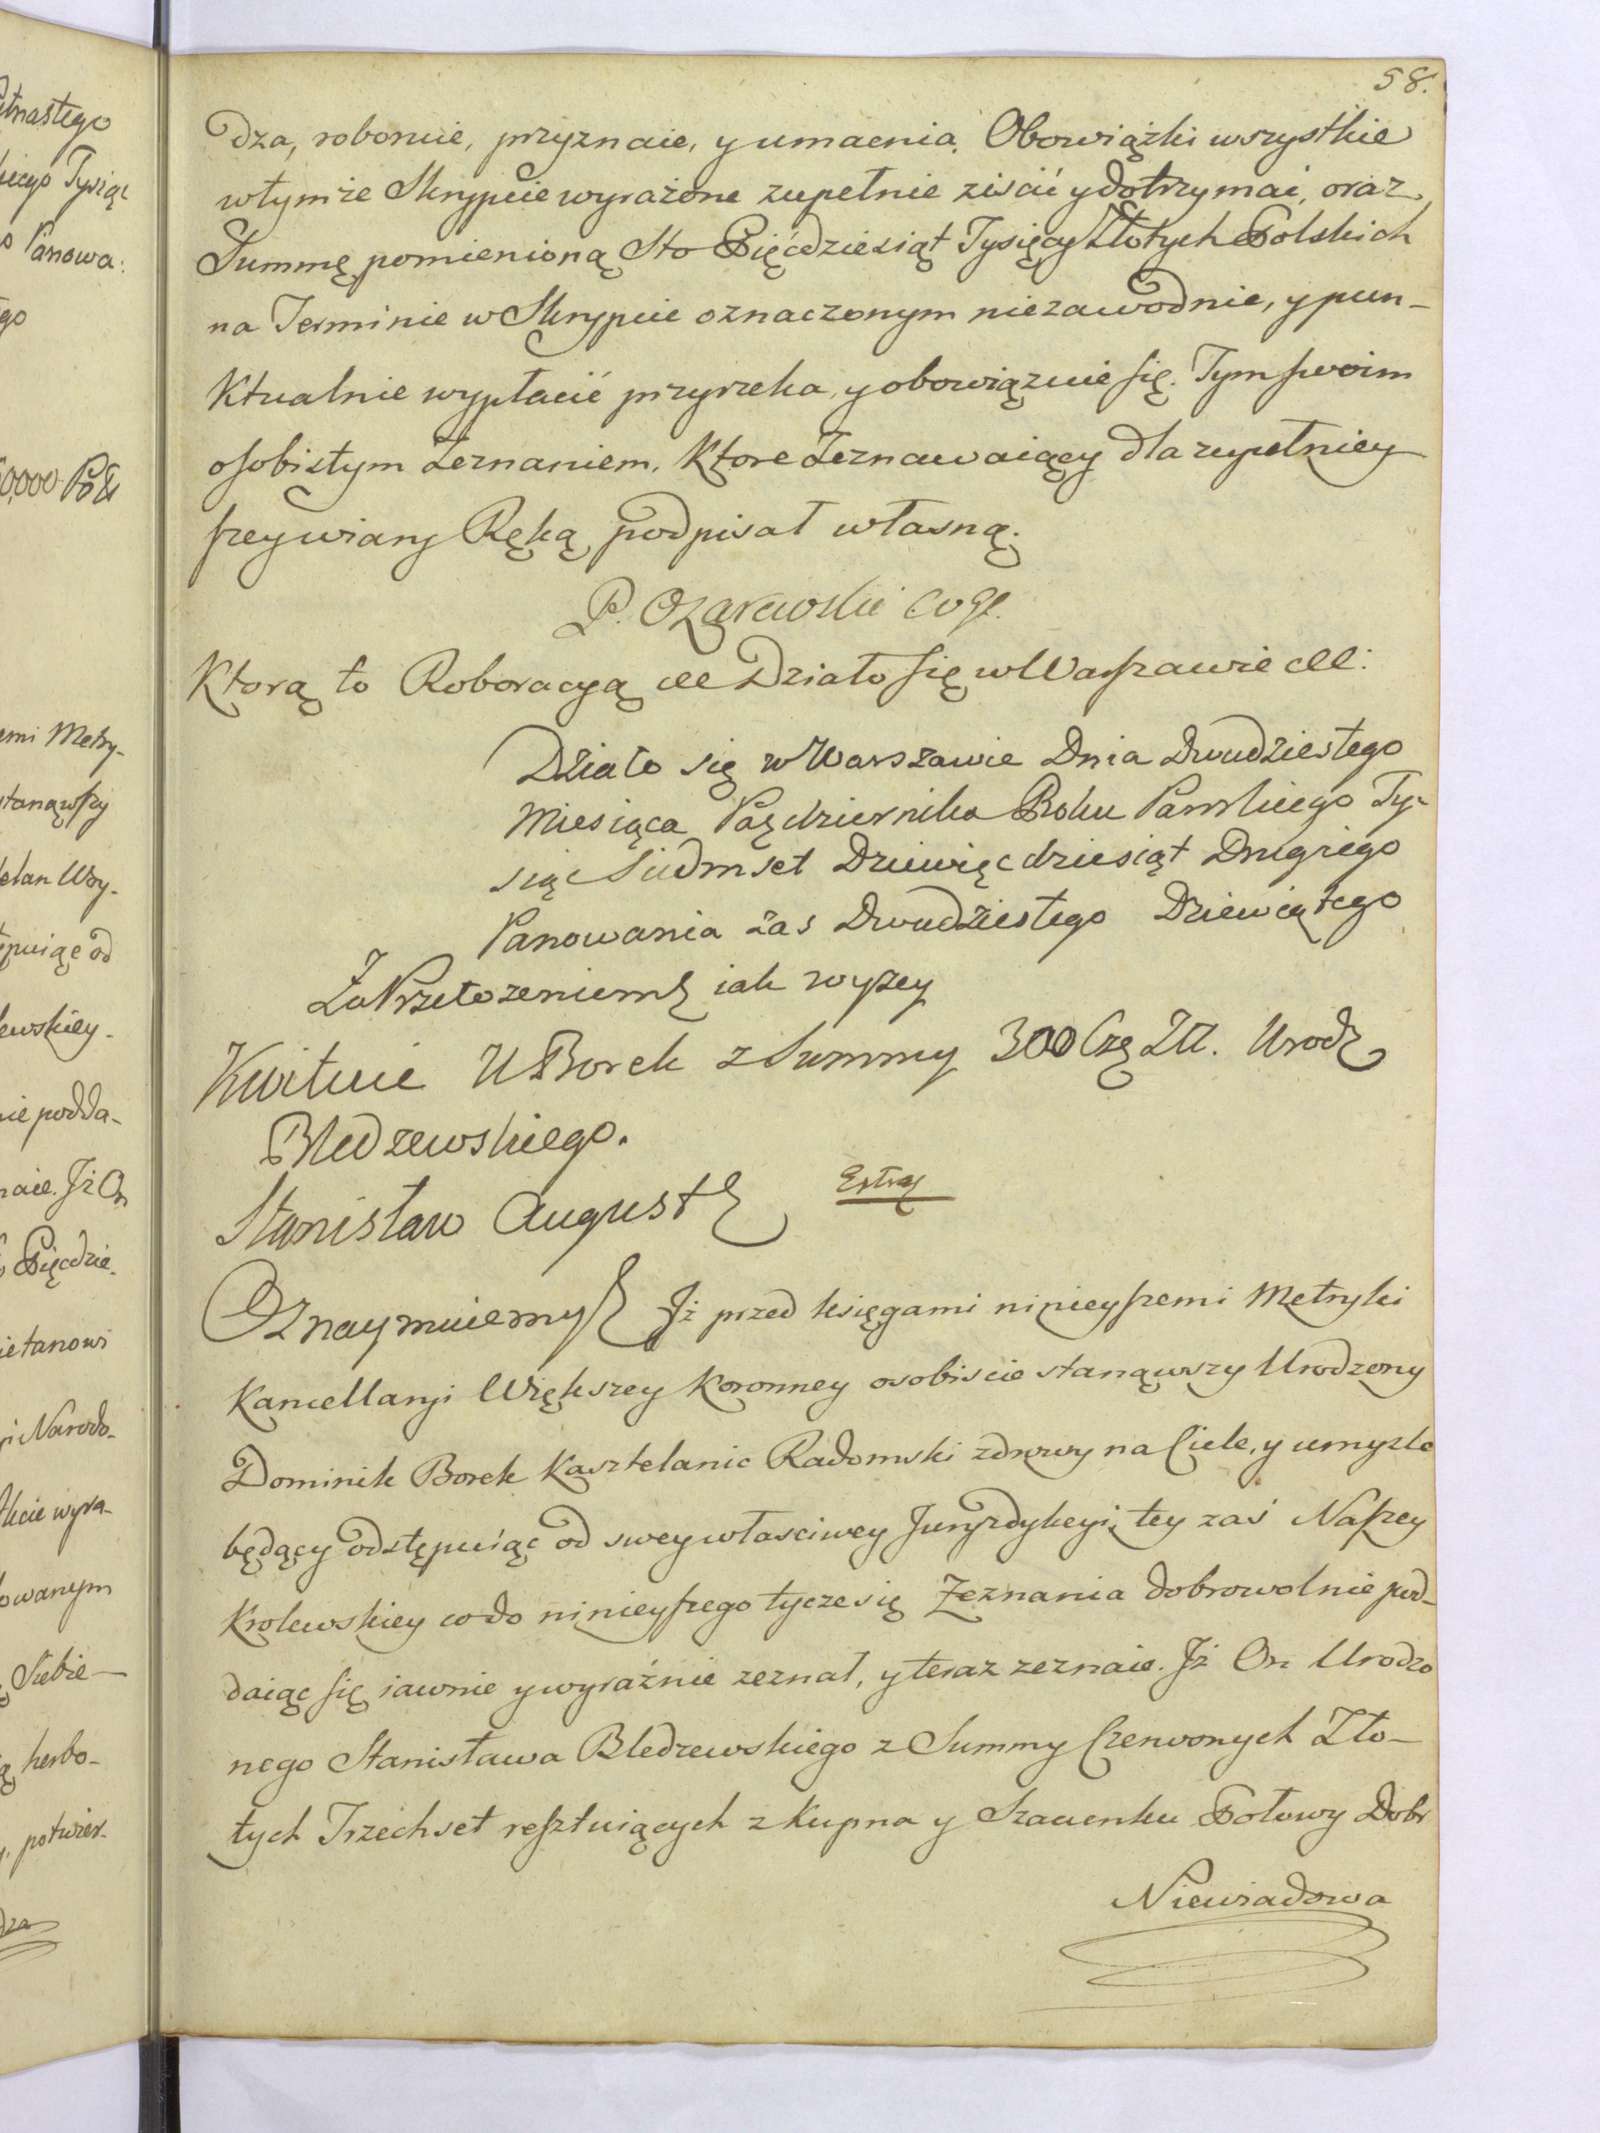 58.
dza, roboruie, przyznaie, y umacnia. Obowiązki wszystkie
w tymże Skrypcie wyrażone zupełnie ziscić y dotrzymać, oraz
Summę pomienioną Sto Pięćdziesiąt Tysięcy Złotych Polskich
na Terminie w Skrypcie oznaczonym niezawodnie, y pun-
ktualnie wypłacić przyrzeka, y obowiązuie się. Tym swoim
osobistym Zeznaniem, Ktore Zeznawaiący dla zupełniey
szey wiary Ręką podpisał własną.
P. Ożarowski
Ktorą to Roboracyą etc Działo się w Warszawie etc:
Działo się w Warszawie Dnia Dwudziestego
Miesiąca Paędziernika Roku Pańskiego Ty-
siąc Siedmset Dziewięćdziesiąt Drugiego
Panowania zaś Dwudziestego Dziewiątego
Za Przełożeniem iak wyżey
Kwituie U Borek z Summy 300 Czę Zll. Urodz
Bledzewskiego.
Stanisław August
Extrag
Oznaymuiemy Iż przed księgami ninieyszemi Metryki
Kancellaryi Większey Koronney osobiscie stanąwszy Urodzony
Dominik Borek Kasztelanic Radomski zdrowy na Ciele, y umyzle
będący odstępuiąc od swey własciwey Juryzdykcyi, tey zaś Naszey
Krolewskiey co do ninieyszego tycze się Zeznania dobrowolnie pod-
daiąc się iawnie y wyraźnie zeznał, y teraz zeznaie. Iż On Urodzo
nego Stanisława Bledzewskiego z Summy Czerwonych Zło-
tych Trzechset resztuiących z kupna y Szacunku Połowy Dobr
Niewiadowa